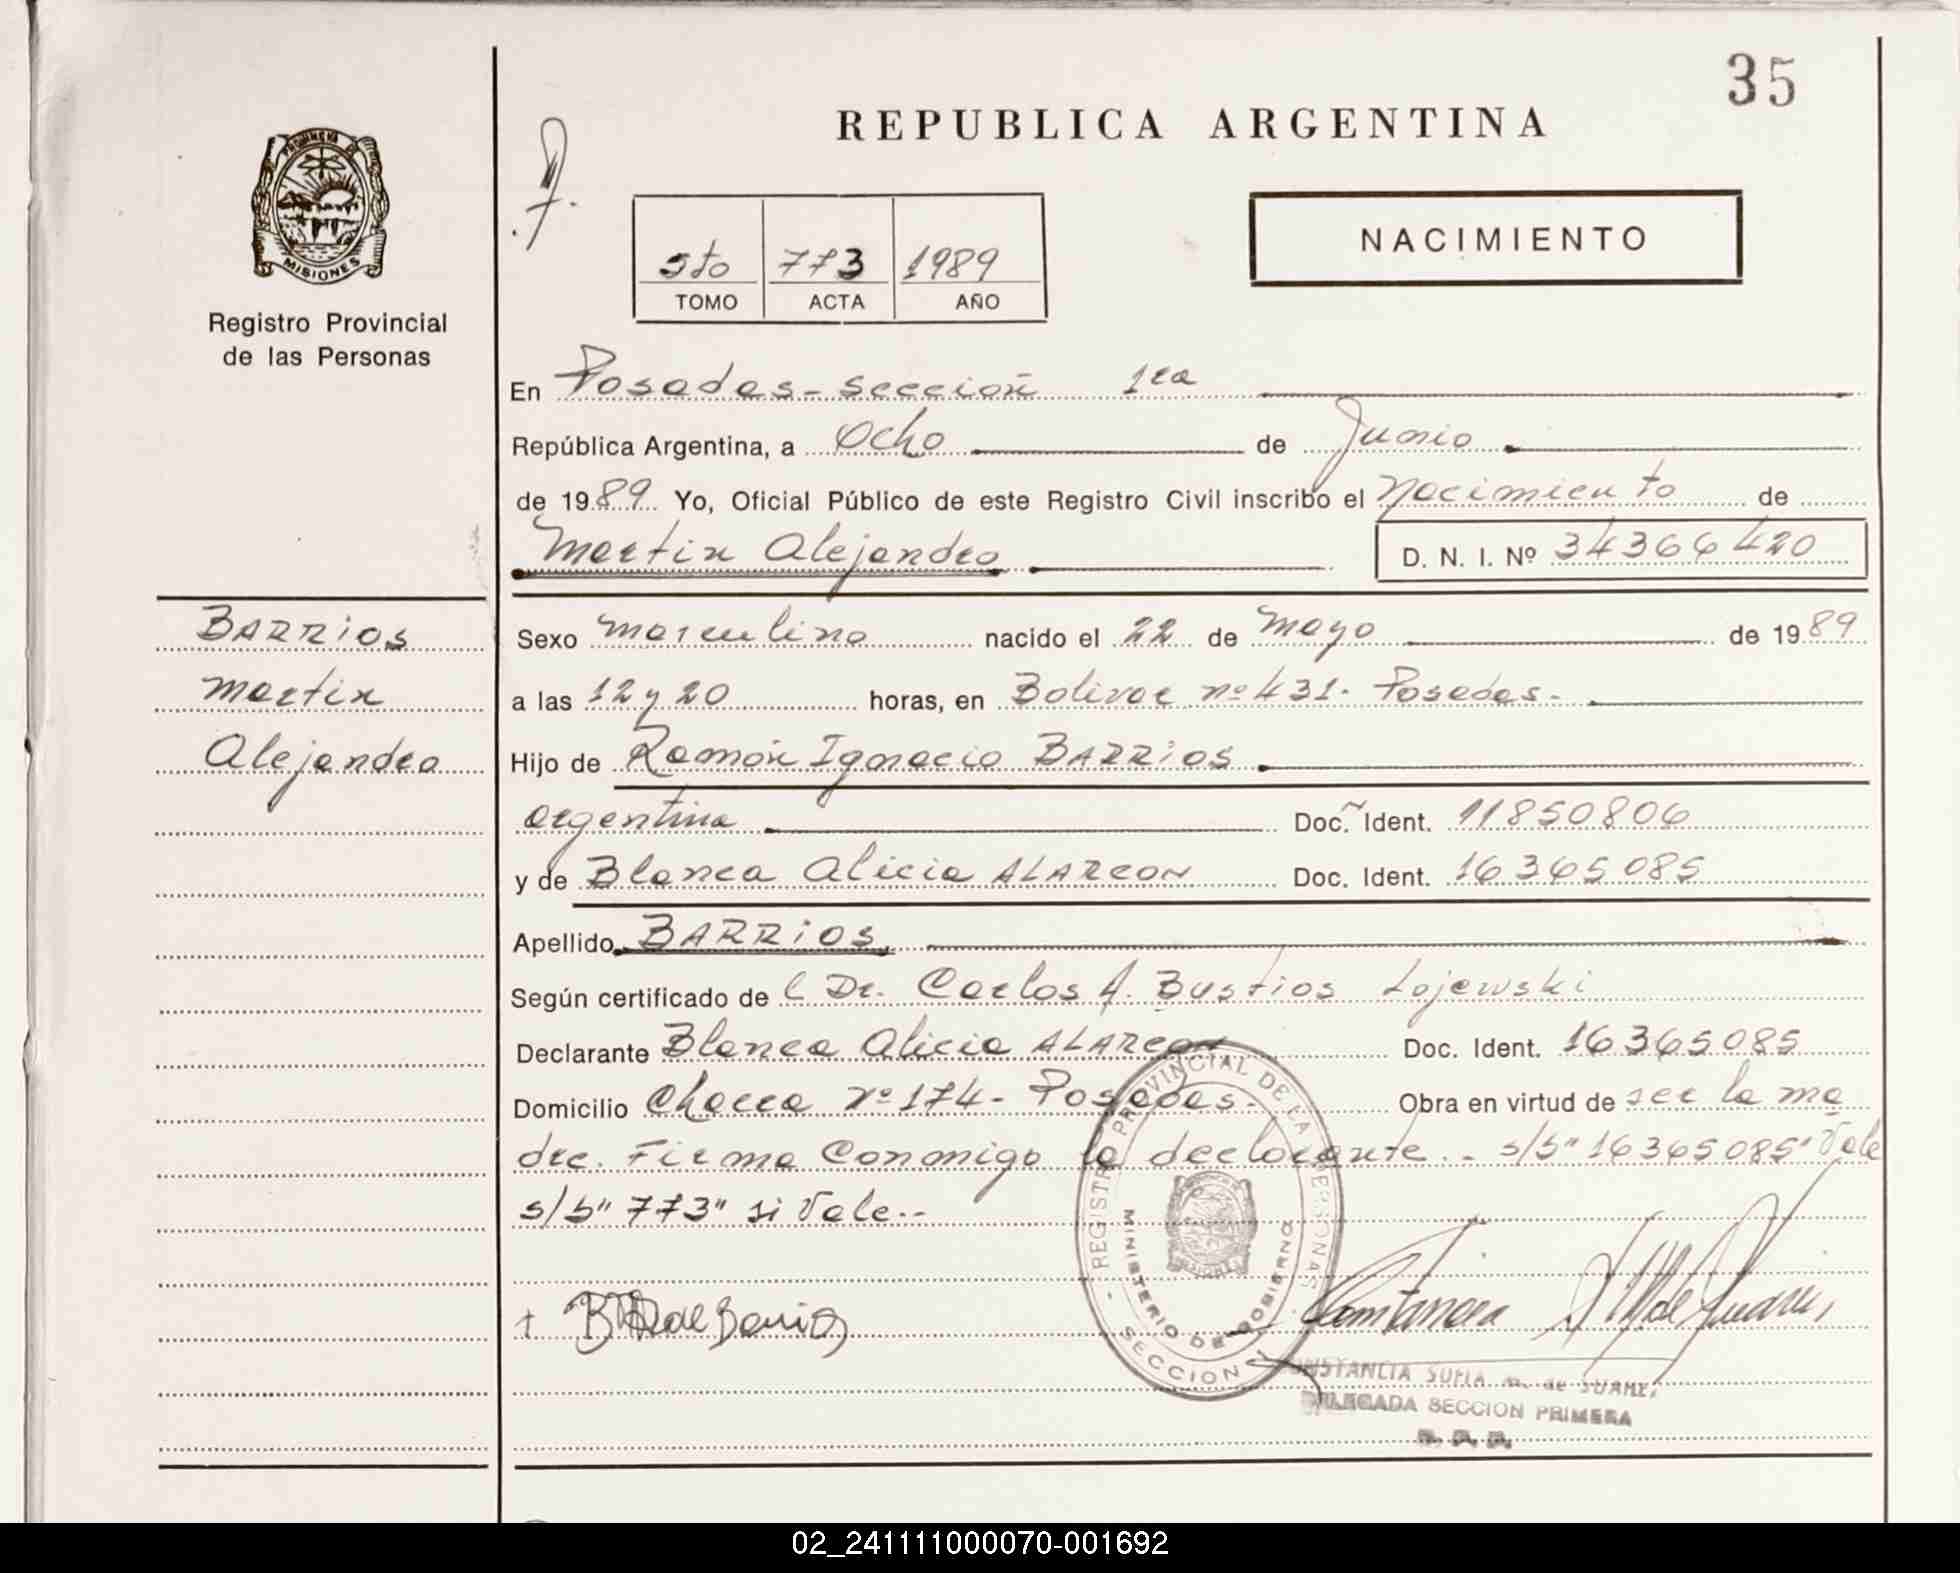 35
REPUBLICA ARGENTINA
PROVINCIA DE
MISIONES
Registro Provincial
de las Personas
5to 773 1989
TOMO ACTA AÑO
NACIMIENTO
En Posadas - sección 1ra
República Argentina, a Ocho de Junio
de 1989 Yo, Oficial Público de este Registro Civil inscribo el Nacimiento de
Martin Alejandro D. N. I. Nº 34366420
BARRIOS
Martin
Alejandro
Sexo masculino nacido el 22 de Mayo de 1989
a las 12 y 20 horas, en Bolivar nº 431. Posadas.
Hijo de Ramón Ignacio BARRIOS
argentina Doc. Ident. 11850806
y de Blanca Alicia ALARCON Doc. Ident. 16365085
Apellido BARRIOS
Según certificado de l Dr. Carlos A. Bustios Lojewski
Declarante Blanca Alicia ALARCON Doc. Ident. 16365085
Domicilio Chacra nº 174 - Posadas. Obra en virtud de ser la ma
dre. Firma Conmigo la declarante.. s/b "16365085" Vale
s/b "773" si Vale..
REGISTRO PROVINCIAL DE LAS PERSONAS
MINISTERIO DE GOBIERNO
SECCION
CONSTANCIA SOFIA M. de SUAREZ
DELEGADA SECCION PRIMERA
02_241111000070-001692